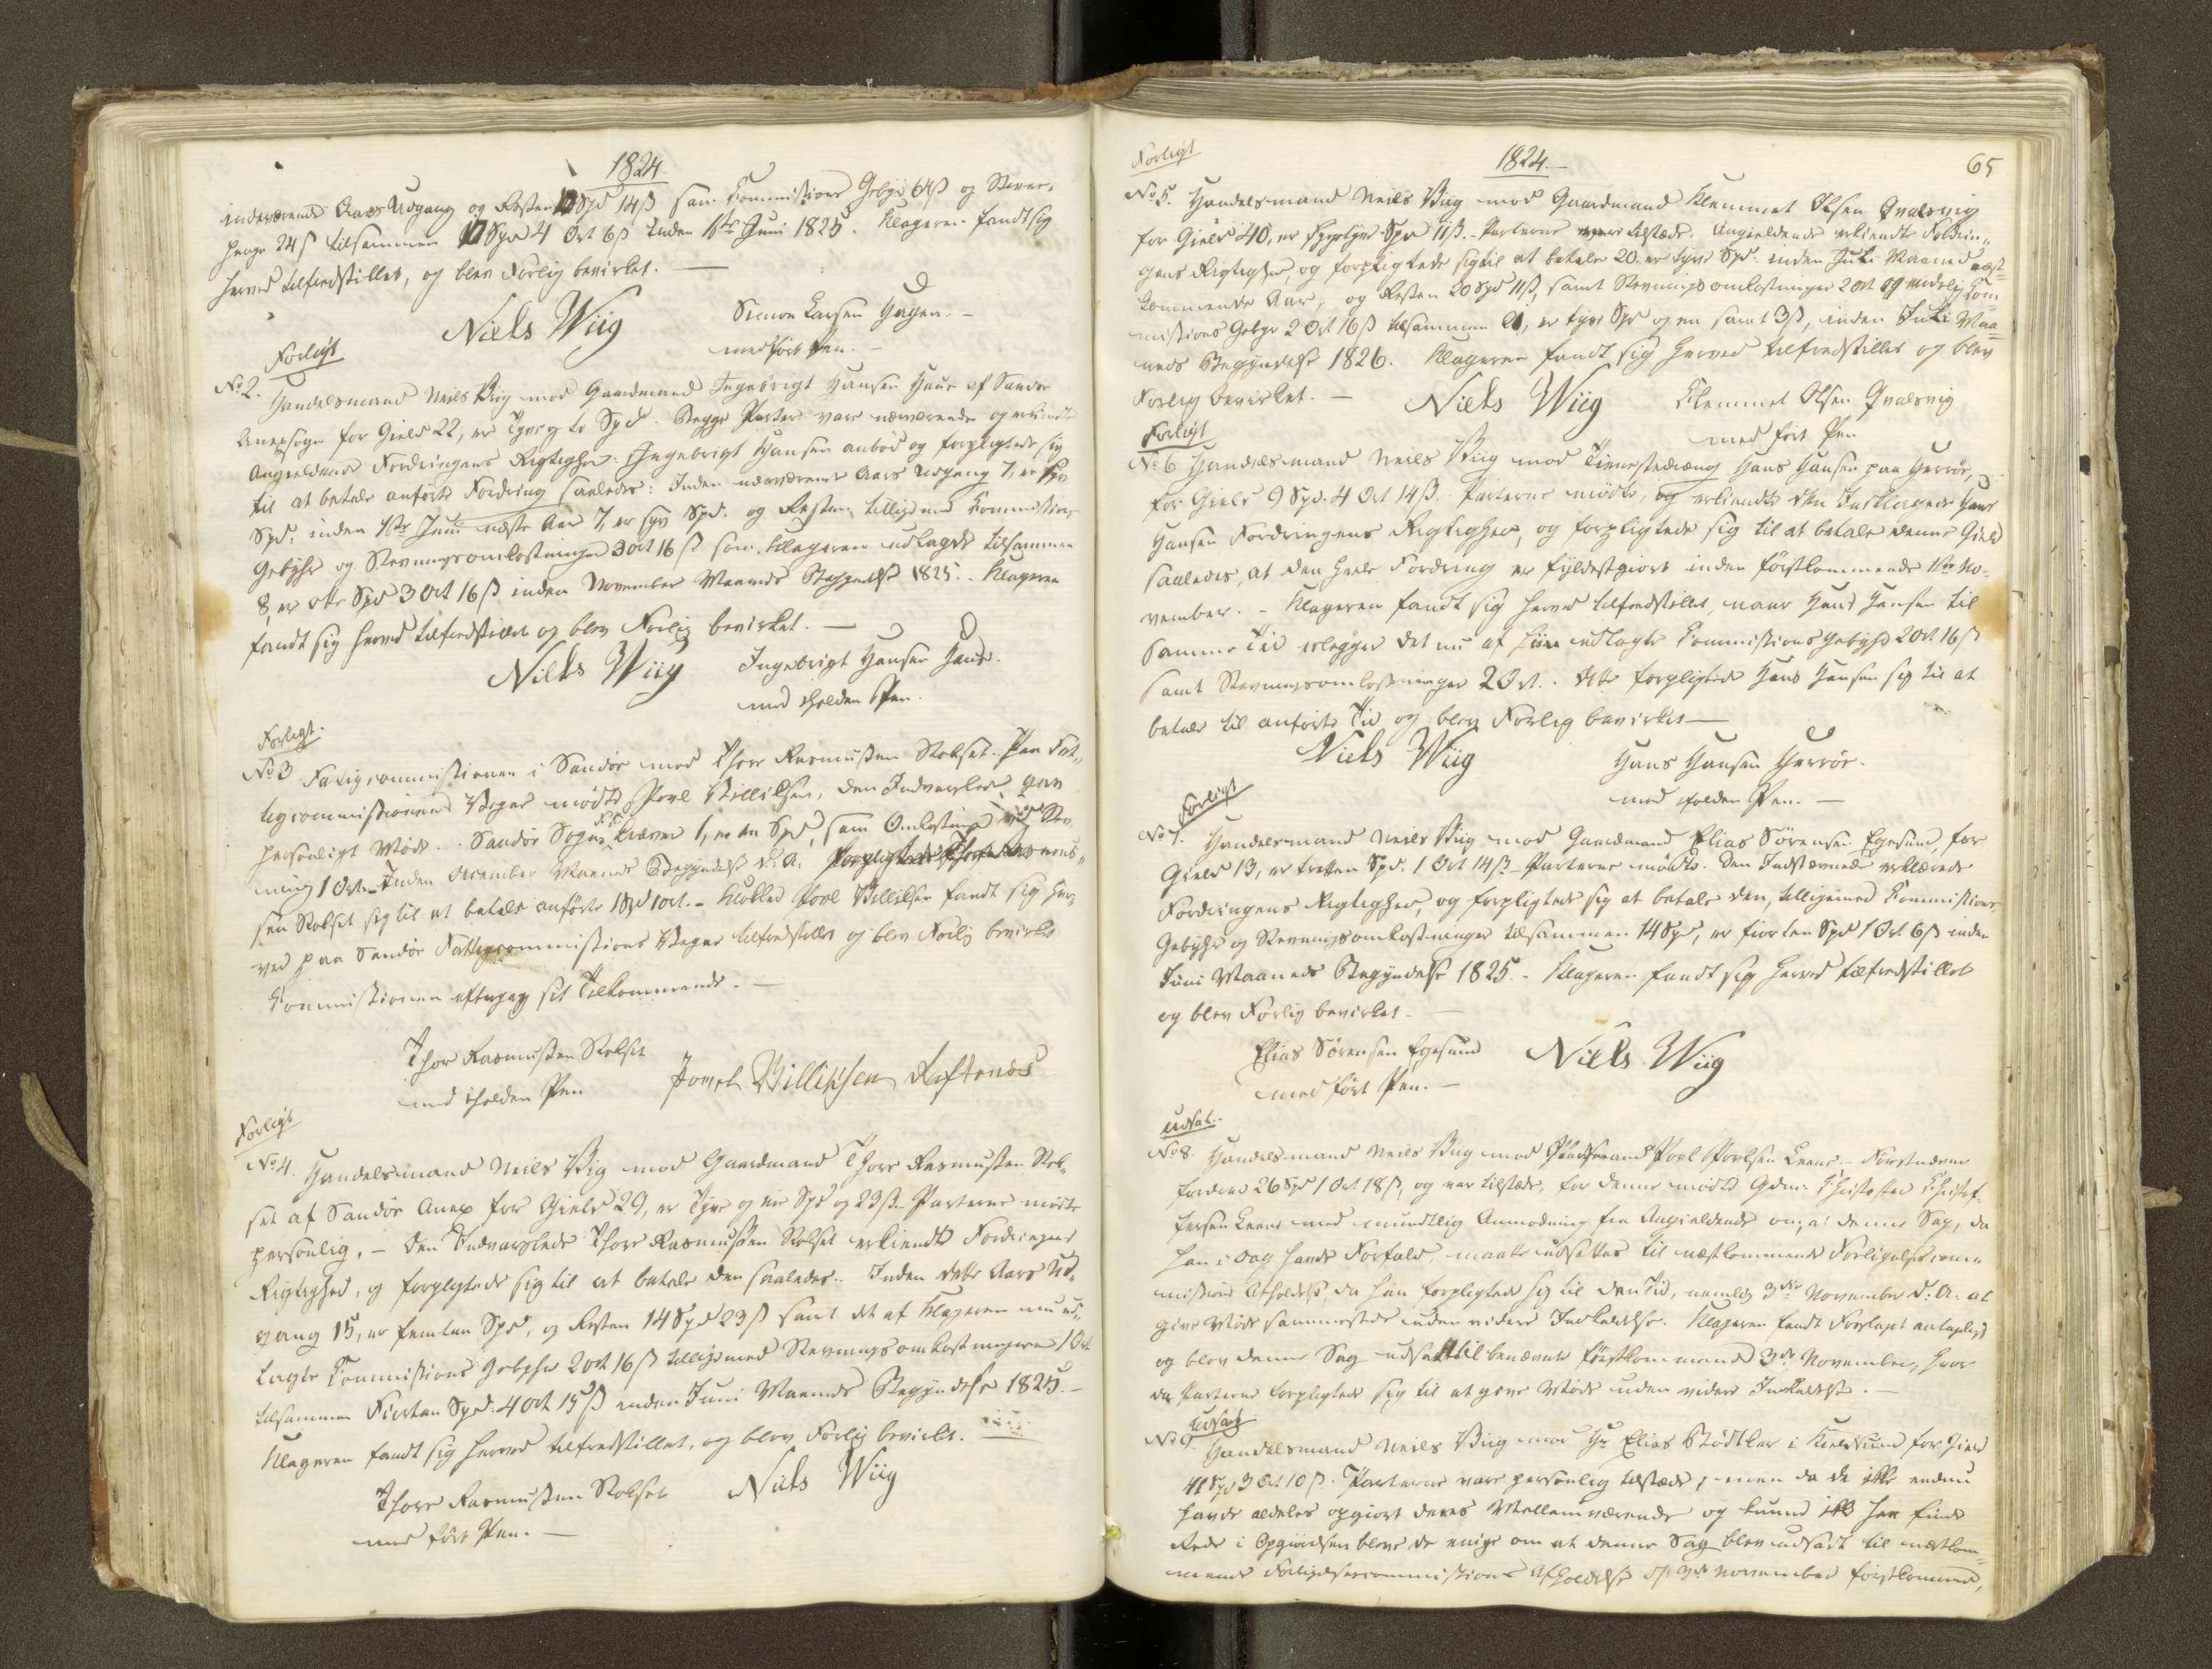 1824.
indeværende Aars Udgang og Resten 17 Spd 14 ß sam Commissions Gebyr 64 ß og Stevne-
penge 24 ß tilsammen 17 Spd 4 Ort 6 ß inden 1ste Juni 1825. Klageren fandt sig
herved tilfredstillet, og blev Forlig bevirket. —
Niels Wiig
Simon Larsen Hagen. -
med ført Pen. -
Forligt
No 2. Handelsmand Neils Wiig mod Gaardmand Ingebrigt Hansen Haue af Sandøe
Anexsogn for Gield 22, er Tyve og to Spd. Begge Parter vare nærværende og erkiendte
Angieldende Fordringens Rigtighed. Ingebrigt Hansen anbød og forpligtede sig
til at betale anførte Fordring saaledes: Inden nærværende Aars Udgang 7, er syv
Spd. inden 1ste Juni næste Aar 7, er syv Spd. og Resten tilligemed Commissions
Gebyhr og Stevningsomkostninger 3 Ort 16 ß som Klageren udlagde tilsammen
8, er otte Spd 3 Ort 16 ß inden November Maaneds Begyndelse 1825. Klageren
fandt sig herved tilfredstillet og blev Forlig bevirket. —
Niels Wiig
Ingebrigt Hansen Haue.
med iholden Pen.
Forligt.
No 3 Fatigcommissionen i Sandøe mod Thore Rasmussen Rolset. Paa Fat-
tigcommissionens Vegne mødte Povl Villiksen, den Indvarslede gav
personligt Møde. Sandøe Sogns Kræver 1, er en Spd, sam Omkostning ved Stev
ning 1 Ort. Inden December Maaneds Begyndelse d. A. forpligtede Thore Rasmus-
sen Rolset sig til at betale anførte 1 Spd 1 Ort. - Klokker Povl Villiksen fandt sig her-
ved paa Sandøe Fattigcommissions Vegne tilfredstillet og blev Forlig bevirket
Commissionen eftergav sit Tilkommende. —
Thore Rasmussen Rolset
med iholden Pen
Povel Villiksen Røftenæs
Forligt
No 4. Handelsmand Neils Viig mod Gaardmand Thore Rasmussen Rol-
set af Sandøe Anex for Gield 29, er Tyve og nie Spd og 23 ß. Parterne mødte
personlig. - Den Indvarslede Thore Rasmussen Rolset erkiendte Fordringens
Rigtighed, og forpligtede sig til at betale den saaledes: Inden dette Aars Ud-
gang 15, er femten Spd, og Resten 14 Spd 23 ß samt det af Klageren nu ud-
lagte Commissions Gebyhr 2 Ort 16 ß tilligemed Stevningsomkostningerne 1 Ort
tilsammen Fiorten Spd: 4 Ort 15 ß inden Juni Maaneds Begyndelse 1825. -
Klageren fandt sig herved tilfredstillet, og blev Forlig bevirket.
Thore Rasmussen Rolset
med ført Pen. —
Niels Wiig
1824.
65
Forligt
No 5. Handelsmand Neils Viig mod Gaardmand Klemmet Olsen Qvalsvig
for Gield 40, er Fyrgetyve Spd 11 ß. Parterne vare tilstæde. Angieldende erkiendte Fordrin-
gens Rigtighed, og forpligtede sig til at betale 20 er tyve Spd. inden Juli Maaned næst-
kommende Aar, og Resten 20 Spd 11 ß, samt Stevningsomkostninger 2 Ort og endelig Com
missions Gebyr 2 Ort 16 ß tilsammen 21, er tyve Spd og en samt 3 ß, inden Juli Maa-
neds Begyndelse 1826. Klageren fandt sig herved tilfredstillet og blev
Forlig bevirket. —
Niels Wiig
Klemmet Olsen Qvalsvig
med ført Pen
Forligt
No 6 Handelsmand Neils Viig mod Tienestedræng Hans Hansen paa Herrøe,
for Gield 9 Spd. 4 Ort 14 ß. Parterne mødte, og erkiendte den Indklagede Hans
Hansen Fordringens Rigtighed, og forpligtede sig til at betale denne Gield
saaledes, at den heele Fordring er fyldestgiort inden førstkommende 1ste No-
vember. - Klageren fandt sig herved tilfredstillet, naar Hans Hansen til
samme Tid erlegger det nu af ham udlagte Commissions Gebyhr 2 Ort 16 ß
samt Stevningsomkostninger 2 Ort. Dette forpligtede Hans Hansen sig til at
betale til anførte Tid og blev Forlig bevirket —
Niels Wiig
Hans Hansen Herrøe.
med iholden Pen. —
Forligt
No 7. Handelsmand Neils Viig mod Gaardmand Elias Sørensen Egesund, for
Gield 13, er tretten Spd. 1 Ort 14 ß. Parterne mødte. Den Indstævnede erklærede
Fordringens Rigtighed, og forpligtede sig at betale den, tilligemed Commissions
Gebyhr og Stevningsomkostninger tilsammen 14 Spd, er fiorten Spd 1 Ort 6 ß inden
Juni Maaneds Begyndelse 1825. - Klageren fandt sig herved tilfredstillet
og blev Forlig bevirket. —
Elias Sørensen Egesund
med ført Pen. —
Niels Wiig
Udsat.
No 8. Handelsmand Neils Viig mod Povl Povlsen Leene - Førstnævnte
fordrer 26 Spd 1 Ort 18 ß, og var tilstæde, for denne mødte Gdm. Christoffer Christof-
fersen Leene med mundtlig Anmodning fra Angieldende om, at denne Sag, da
han i Dag havde Forfald, maatte udsættes til næstkommende Forligelsescom-
missions Afholdelse, da han forpligtede sig til den Tid, nemlig 3die November d. A. at
give Møde sammesteds uden videre Indkaldelse. Klageren fandt Forslaget antageligt
og blev denne Sag udsat til benævnte førstkommende 3die November, hvor
da Parterne forpligtede sig til at give Møde uden videre Indkaldelse. —
Udsat
No 9. Handelsmand Neils Viig mod Hr Elias Bødtker i Kielsund for Gield
41 Spd 3 Ort 10 ß. Parterne vare personlig tilstæde, men da de ikke endnu
havde aldeles opgiort deres Mellemværende og kunde ikke her finde
Rede i Opgiørelsen bleve de enige om at denne Sag blev udsadt til næstkom-
mende Forligelsescommissions Afholdelse d. 3die November førstkommende,